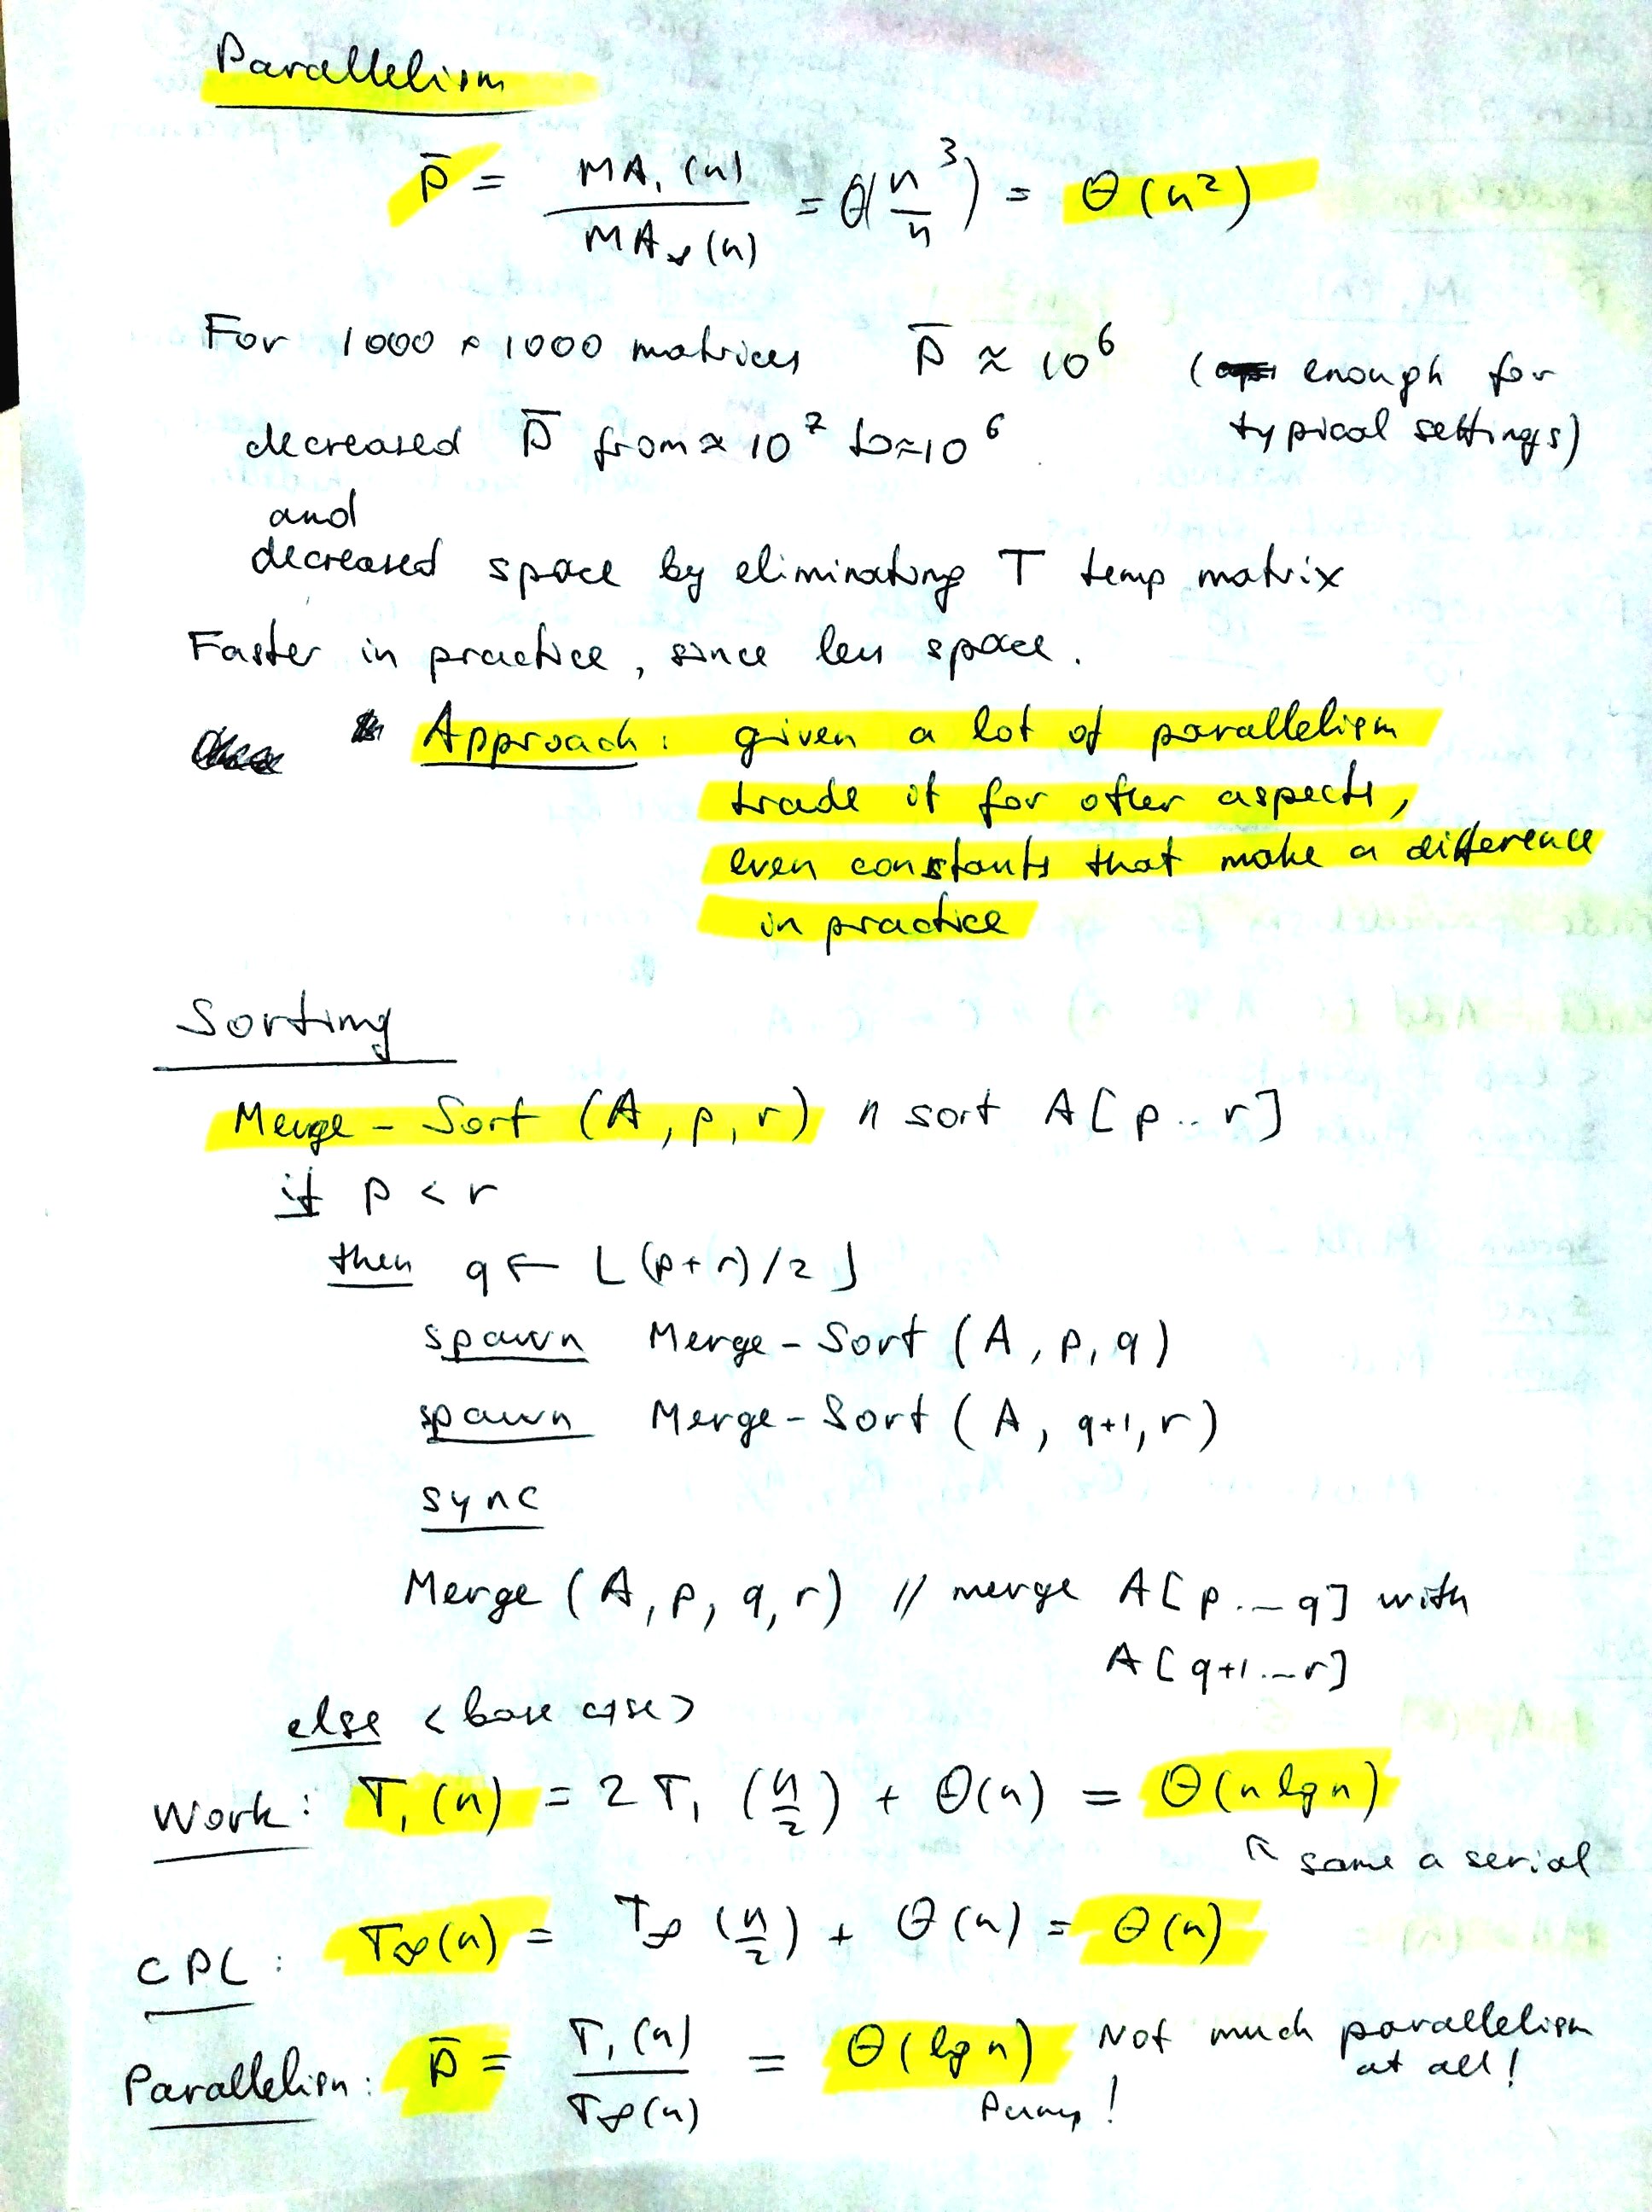 Parallelism
P̄ = MA₁(n) / MA∞(n) = Θ(n³/n) = Θ(n²)
For 1000 × 1000 matrices P̄ ≈ 10⁶ (enough for
typical settings)
decreased P̄ from ≈ 10⁷ to ≈ 10⁶
and
decreased space by eliminating T temp matrix
Faster in practice, since less space.
Approach: given a lot of parallelism
trade it for other aspects,
even constants that make a difference
in practice
Sorting
Merge-Sort (A, p, r) // sort A[p..r]
if p < r
then q ← ⌊(p+r)/2⌋
spawn Merge-Sort (A, p, q)
spawn Merge-Sort (A, q+1, r)
sync
Merge (A, p, q, r) // merge A[p...q] with
A[q+1...r]
else <base case>
Work: T₁(n) = 2T₁(n/2) + Θ(n) = Θ(n lg n)
↖ same a serial
CPL: T∞(n) = T∞(n/2) + Θ(n) = Θ(n)
Parallelism: P̄ = T₁(n) / T∞(n) = Θ(lg n) Not much parallelism
at all!
Puny!